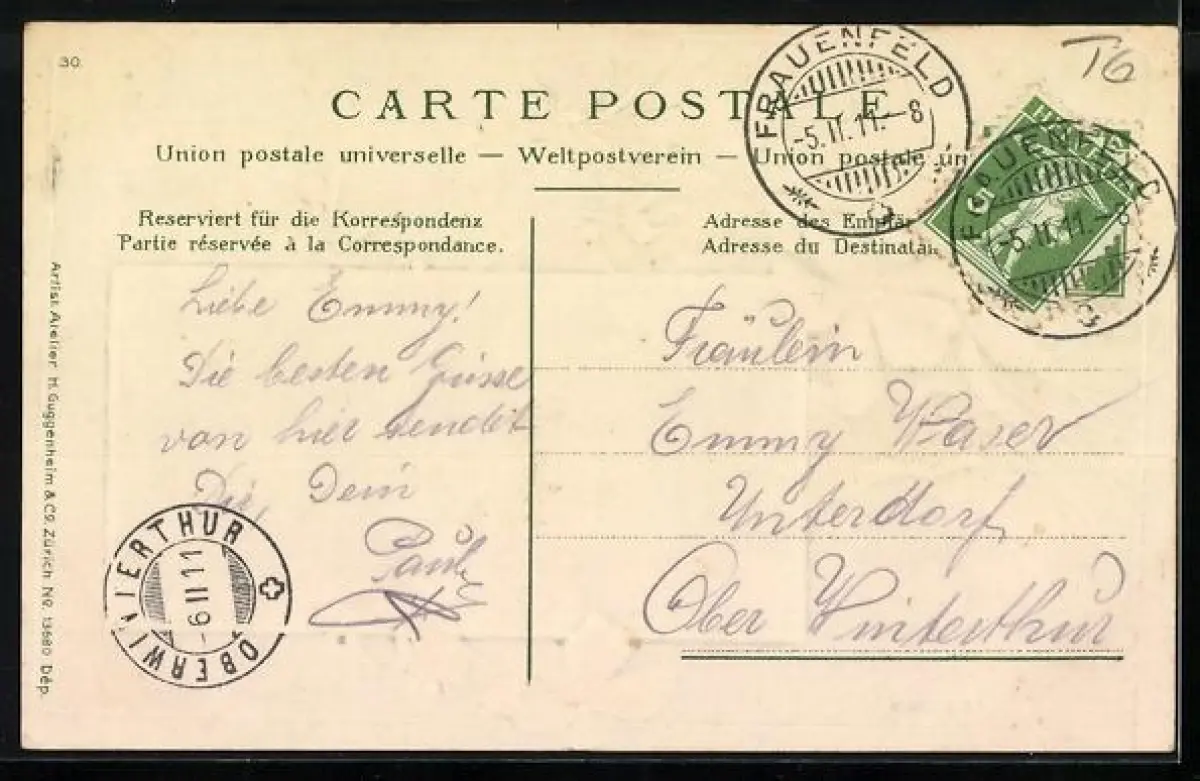 30
T6
CARTE POSTALE
Union postale universelle — Weltpostverein — Union postale un
FRAUENFELD
-5.II.11.-8
FRAUENFELD
-5.II.11.-8
Reserviert für die Korrespondenz
Partie réservée à la Correspondance.
Adresse des Empfän
Adresse du Destinatai
Liebe Emmy!
Die besten Grüsse
von hier sendet
Dir, Dein
Paul
Fräulein
Emmy Waser
Unterdorf
Ober Winterthur
OBERWINTERTHUR
-6 II 11
Artist. Atelier H. Guggenheim & Co. Zürich No. 13680 Dép.